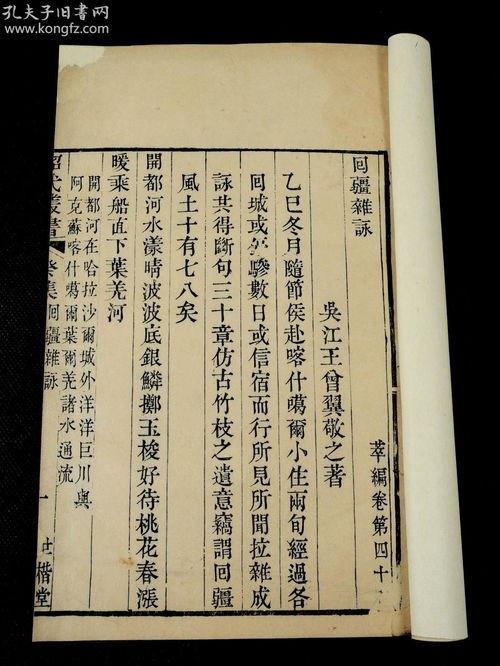 孔夫子旧书网
www.kongfz.com
回疆雜詠
萃編卷第四十
吳江王曾翼敬之著
乙巳冬月隨節侯赴喀什噶爾小住兩旬經過各
回城或停驂數日或信宿而行所見所聞拉雜成
詠共得斷句三十章仿古竹枝之遺意竊謂回疆
風土十有七八矣
開都河水漾晴波波底銀鱗擲玉梭好待桃花春漲
暖乘船直下葉羌河
開都河在哈拉沙爾城外洋洋巨川與
阿克蘇喀什噶爾葉爾羌諸水通流
昭代叢書
癸集回疆雜詠
一
世楷堂